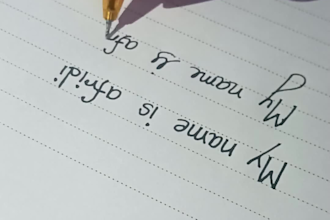 My name is afridi
My name is af